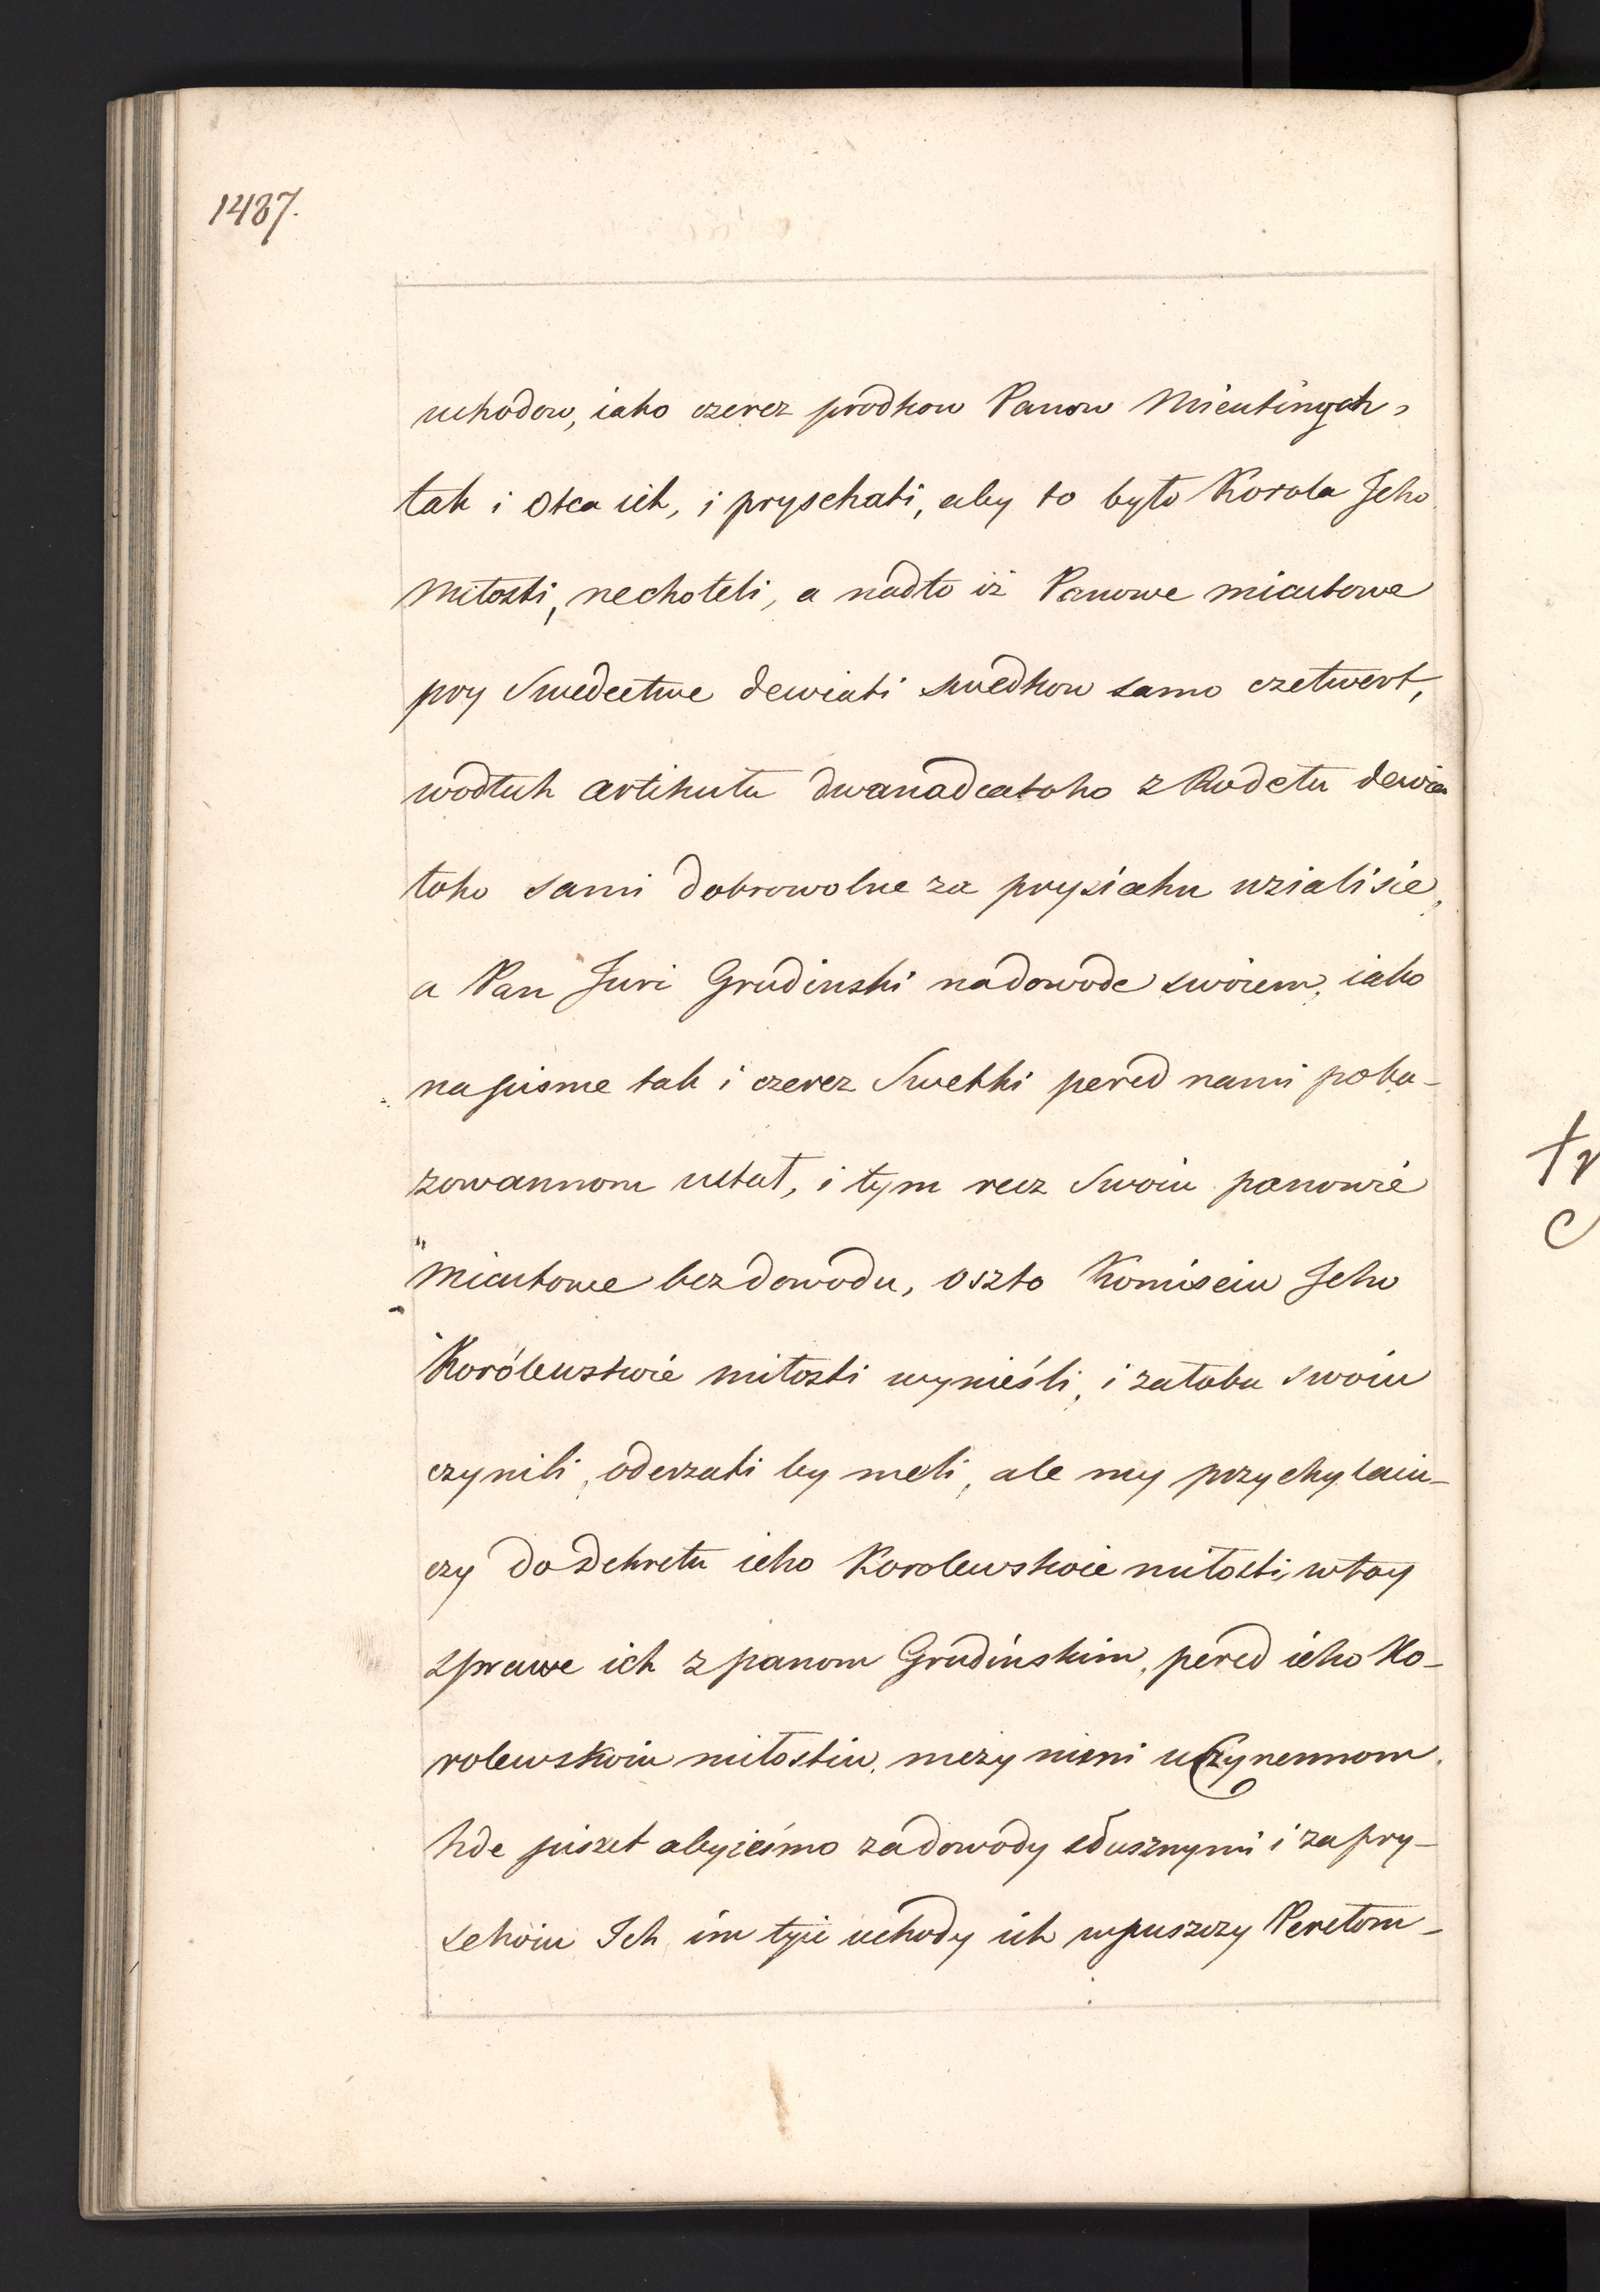 1487.
uchodow, iako czerez prodkow Panow Mieutinych,
tak i Otca ich, i prysehati, aby to było Korola Jeho
Miłosti, nechoteli, a nadto iż Panowe mieutowe
pry Swedectwe dewiati swedkow samo czetwert,
wodłuh artikułu dwanadcatoho z Rodełu dewia
toho sami dobrowolne za prysiahu uzialisie,
a Pan Juri Grudinski nadowode swoiem, iako
napisme tak i czerez Swetki pered nami poka-
zowannom ustał, i tym recz Swoiu panowie
Mieutowe bezdowodu, oszto Komiseiu Jeho
Królewskoie miłosti wynieśli, i załobu swoiu
czynili, oderzati by meli, ale my przychylaiu-
czy do dekretu ieho Korolewskoie miłosti, wtoy
sprawe ich z panom Grudinskim, pered ieho Ko-
rolewskoiu miłostiu, mezy nimi uczynennom,
hde piszet abyieśmo zadowody słusznymi i zapry-
sehoiu Ich im tyie uchody ich wpuszczy Peretom-
tr
c